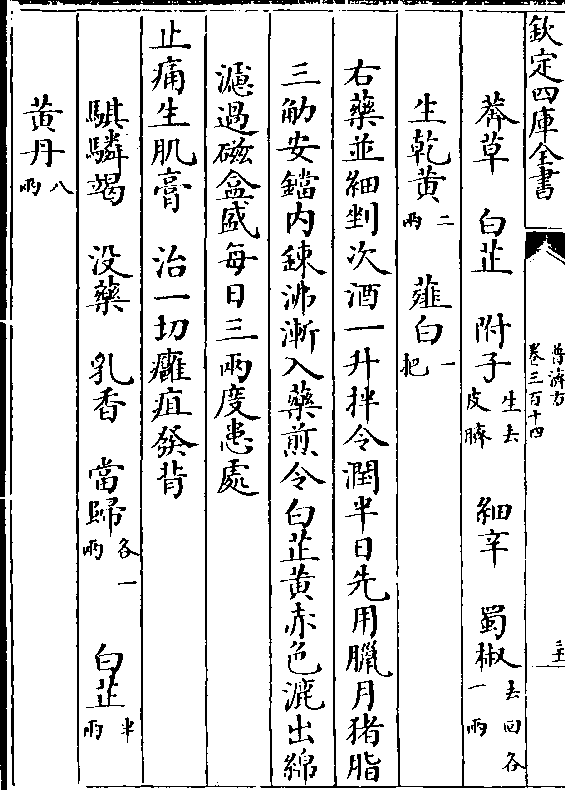 欽定四庫全書
普濟方
卷三百十四
二十五
莾草 白芷 附子生去皮臍 細辛 蜀椒去目各一兩
生乾黄二兩 薤白一把
右藥並細剉次酒一升拌令潤半日先用臘月猪脂
三觔安鐺内鍊沸漸入藥煎令白芷黄赤色漉出綿
濾過磁盒盛每日三兩度患處
止痛生肌膏 治一切癰疽發背
騏驎竭 没藥 乳香 當歸各一兩 白芷半兩
黄丹八兩